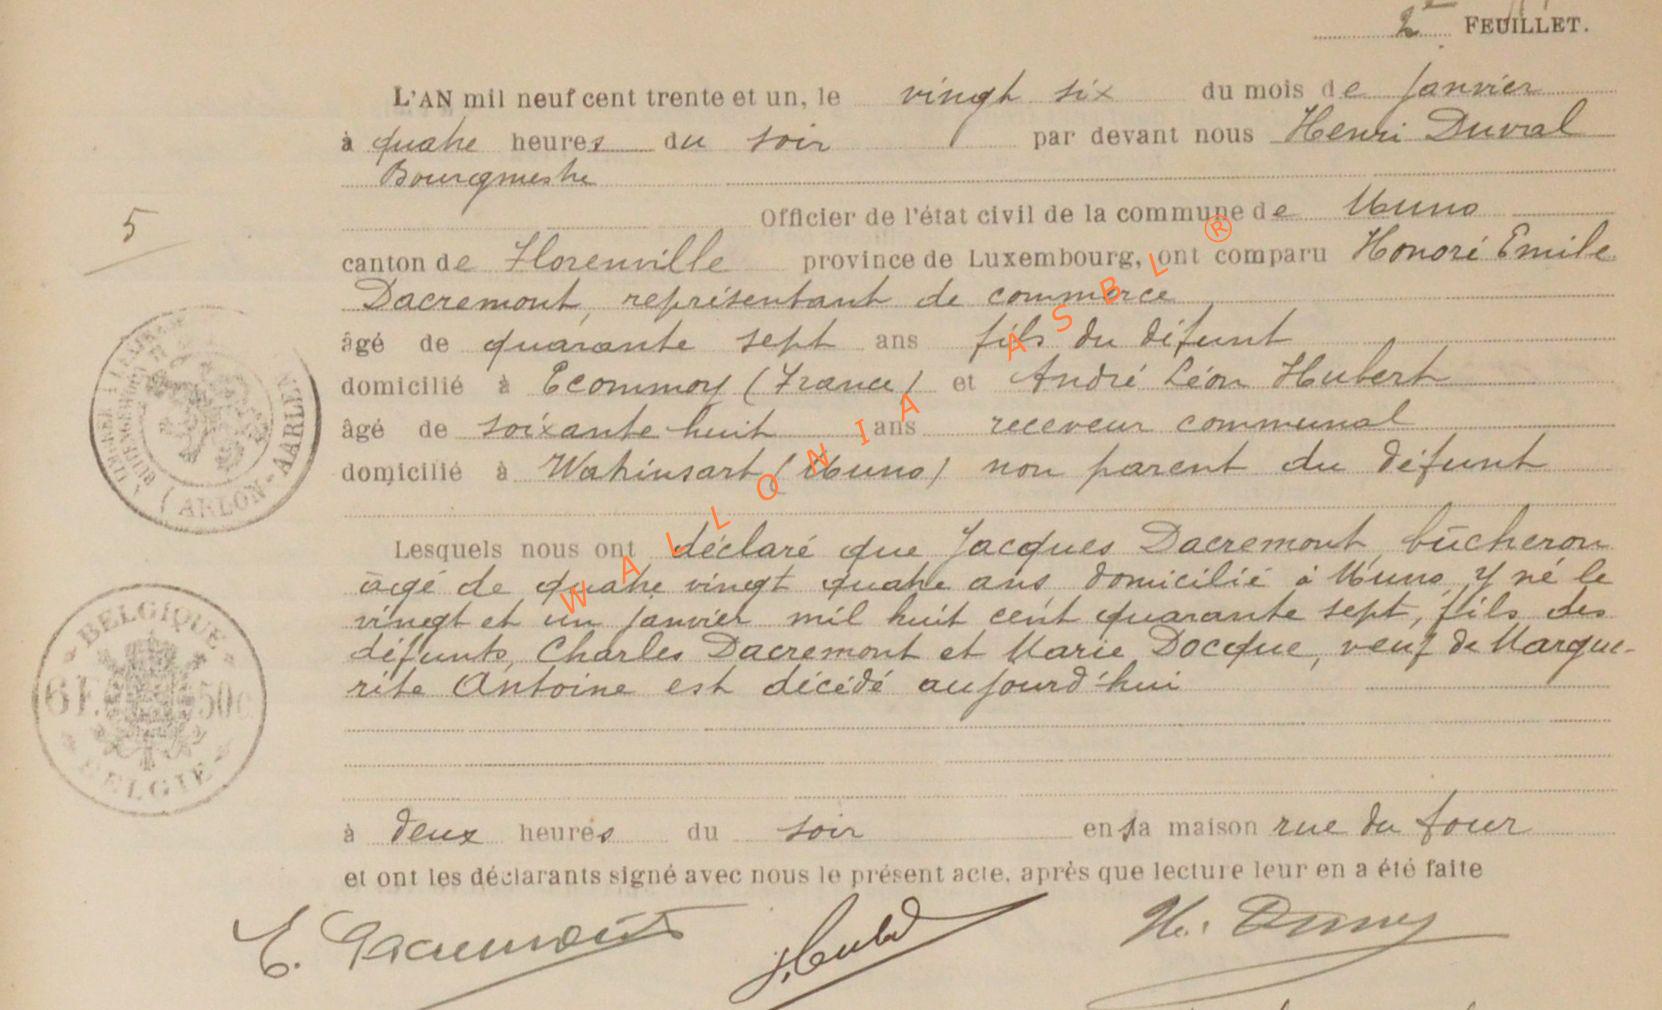 2e FEUILLET.
L'AN mil neuf cent trente et un, le vingt six du mois de janvier
à quatre heures du soir par devant nous Henri Duval
Bourgmestre
Officier de l'état civil de la commune de Muno
5
canton de Florenville province de Luxembourg, ont comparu Honoré Emile
Dacremont, représentant de commerce
âgé de quarante sept ans fils du défunt
domicilié à Ecommoy (France) et André Léon Hubert
âgé de soixante huit ans receveur communal
domicilié à Watrinsart (Muno) non parent du défunt
(ARLON-AARLEN)
Lesquels nous ont déclaré que Jacques Dacremont, bûcheron
âgé de quatre vingt quatre ans domicilié à Muno, y né le
vingt et un janvier mil huit cent quarante sept, fils des
défunts, Charles Dacremont et Marie Docque, veuf de Margue-
rite Antoine est décédé aujourd'hui
BELGIQUE
6F. 50c
BELGIE
à deux heures du soir en sa maison rue du four
et ont les déclarants signé avec nous le présent acte, après que lecture leur en a été faite
E. Dacremont
WALLONIA ASBL ®